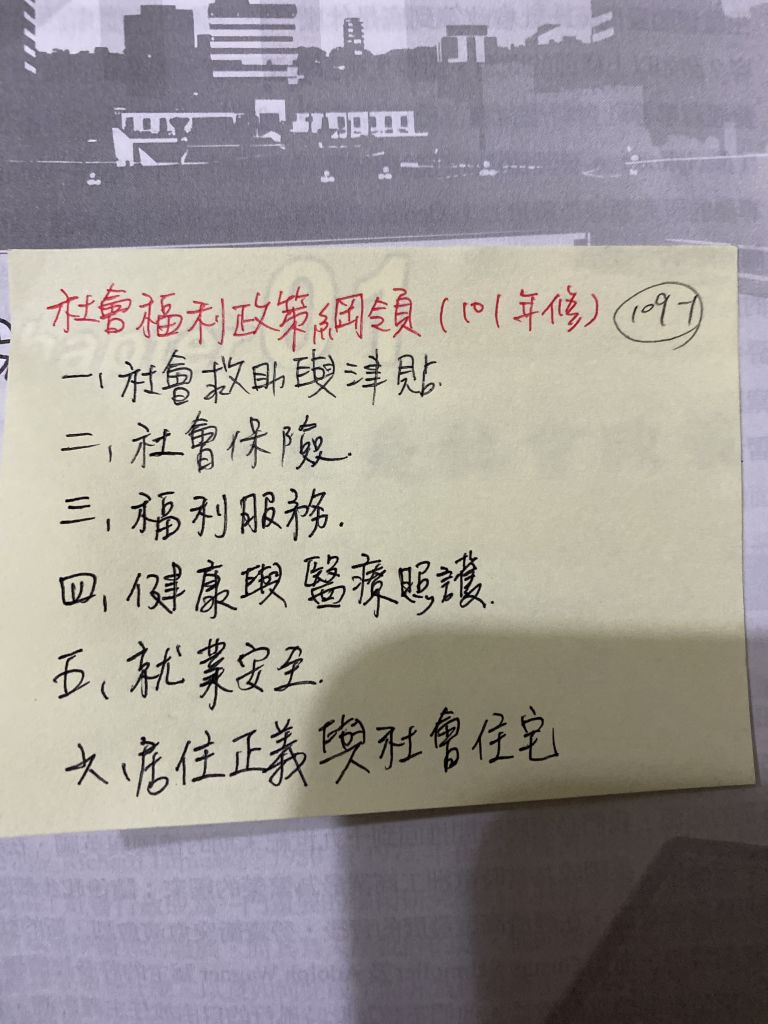 社會福利政策綱領(101年修) 109-1
一、社會救助與津貼.
二、社會保險.
三、福利服務.
四、健康與醫療照護.
五、就業安全.
六、居住正義與社會住宅